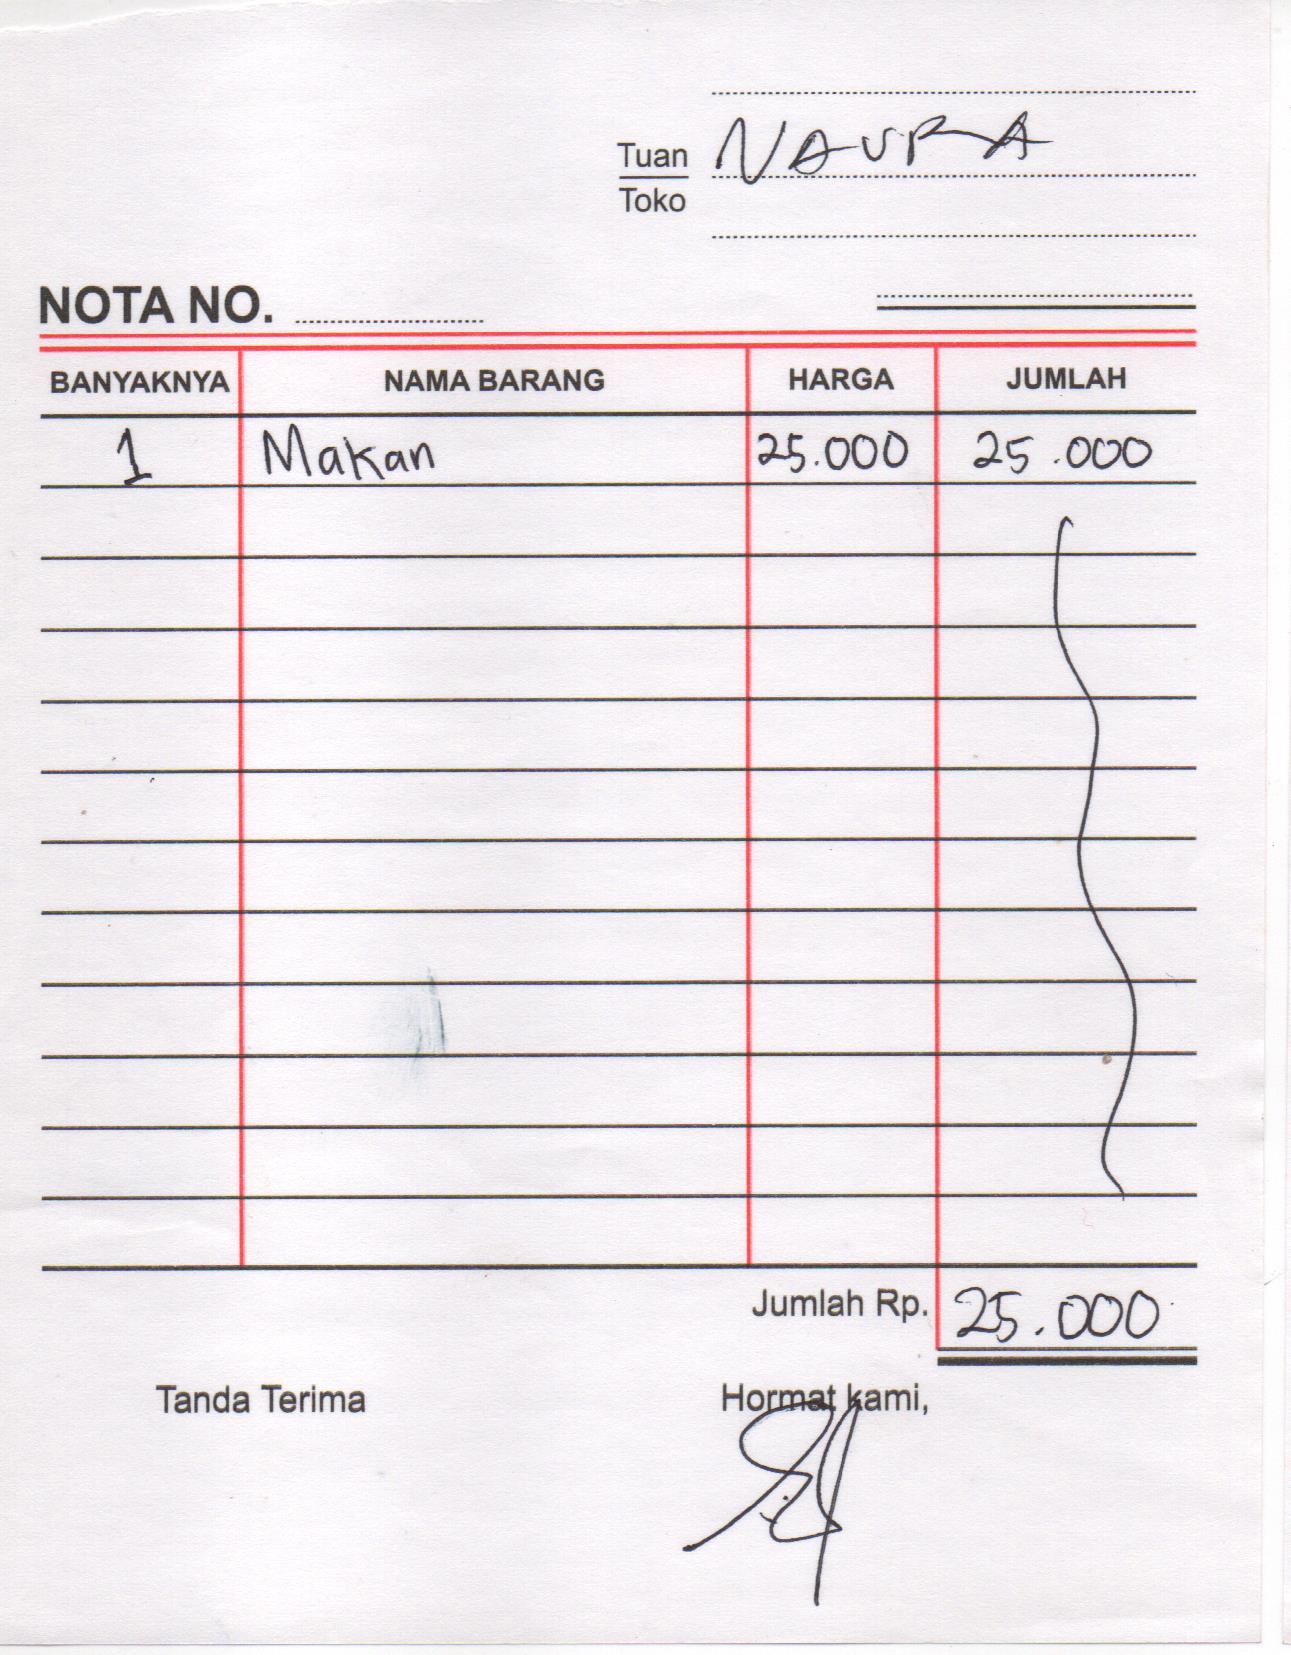 Tuan NAURA
Toko
NOTA NO.
BANYAKNYA NAMA BARANG HARGA JUMLAH
1 Makan 25.000 25.000
Jumlah Rp. 25.000
Tanda Terima Hormat kami,